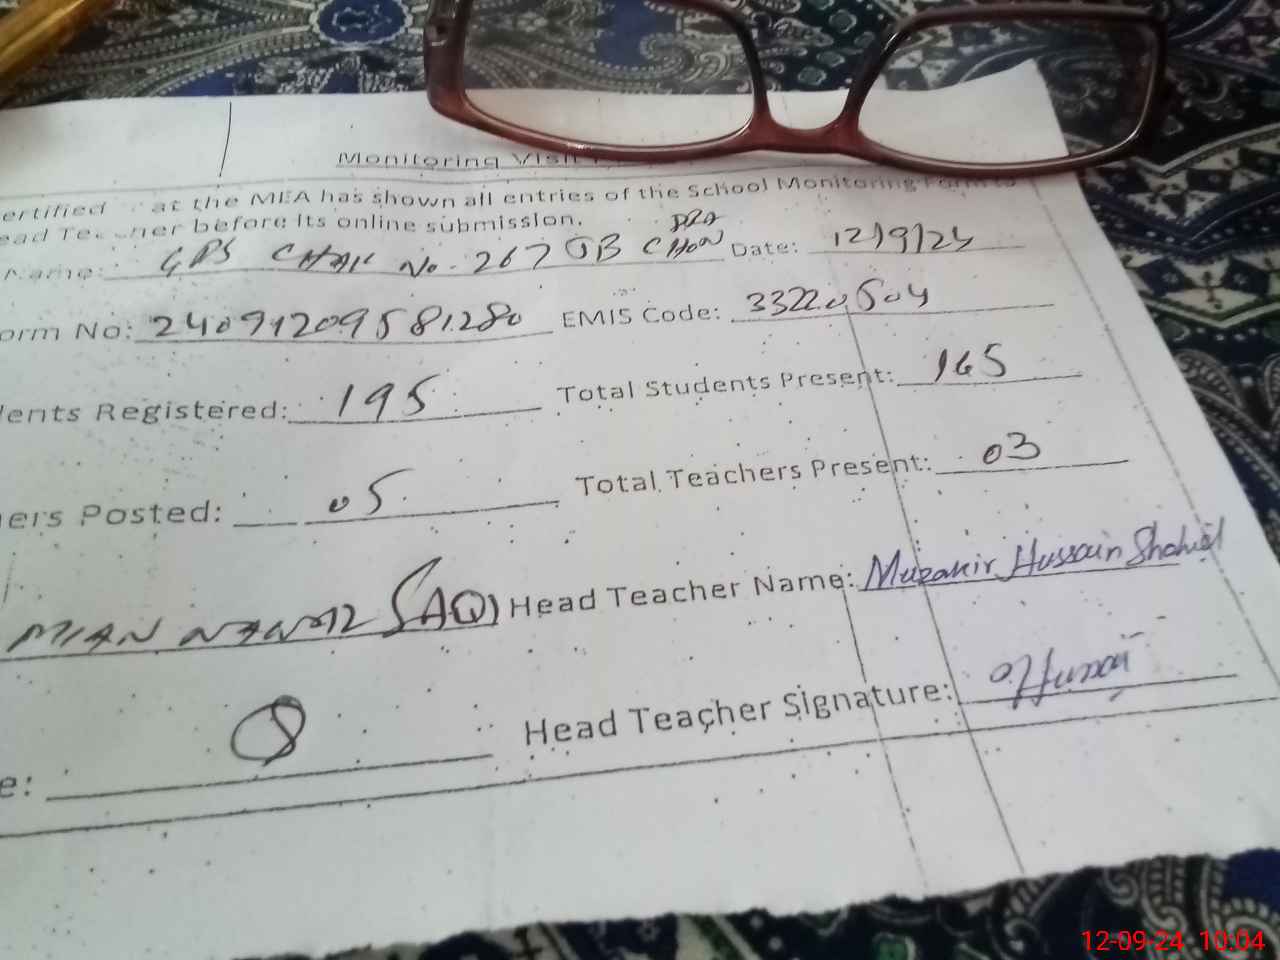 Monitoring Visit
ertified at the MEA has shown all entries of the School Monitoring Form to
ead Teacher before its online submission.
Name: GPS CHAK No. 267 JB CHON Date: 12/9/24
orm No: 2409120958 1280 EMIS Code: 33220504
dents Registered: 195 Total Students Present: 165
ers Posted: 05 Total Teachers Present: 03
MIAN Head Teacher Name: Muzakir Hussain Shahid
e: Head Teacher Signature:
12-09-24 10:04